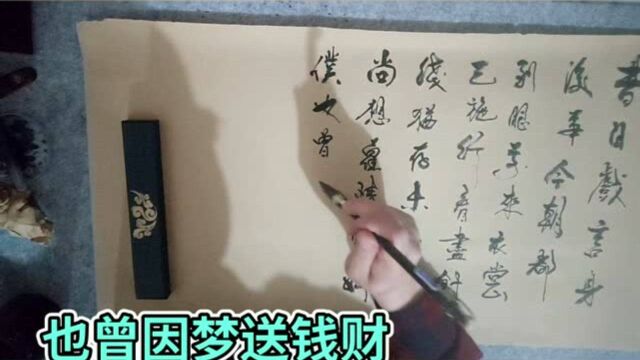 昔日戲言身
後事今朝都
到眼前來衣裳
已施行看盡針
綫猶存未
尚想舊情
僕也曾
也曾因梦送钱财